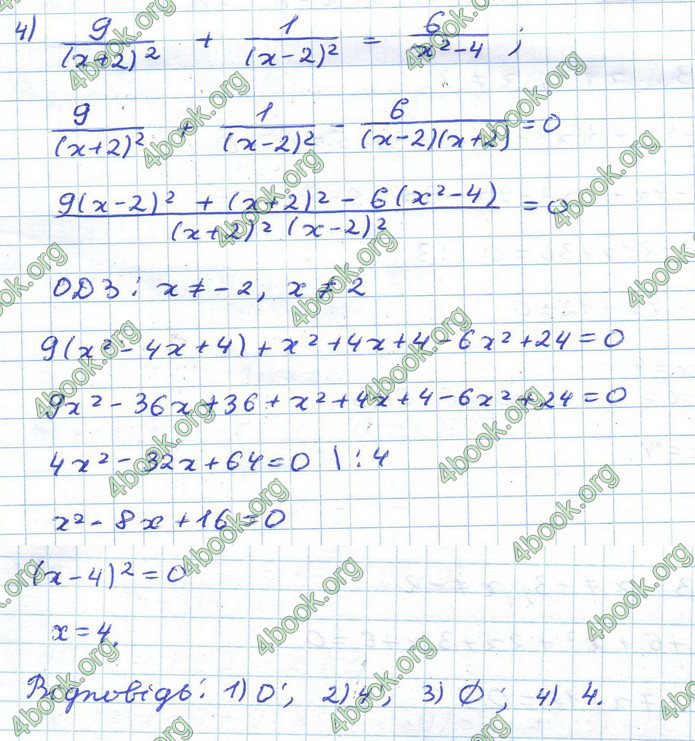 4) 9/(x+2)² + 1/(x-2)² = 6/x²-4 ;
9/(x+2)² + 1/(x-2)² - 6/(x-2)(x+2) = 0
9(x-2)² + (x+2)² - 6(x²-4)/(x+2)²(x-2)² = 0
ОДЗ: x ≠ -2, x ≠ 2
9(x²-4x+4)+x²+4x+4-6x²+24=0
9x²-36x+36+x²+4x+4-6x²+24=0
4x²-32x+64=0 |:4
x²-8x+16=0
(x-4)²=0
x=4.
Відповідь: 1) 0; 2) 4; 3) ∅; 4) 4.
4book.org